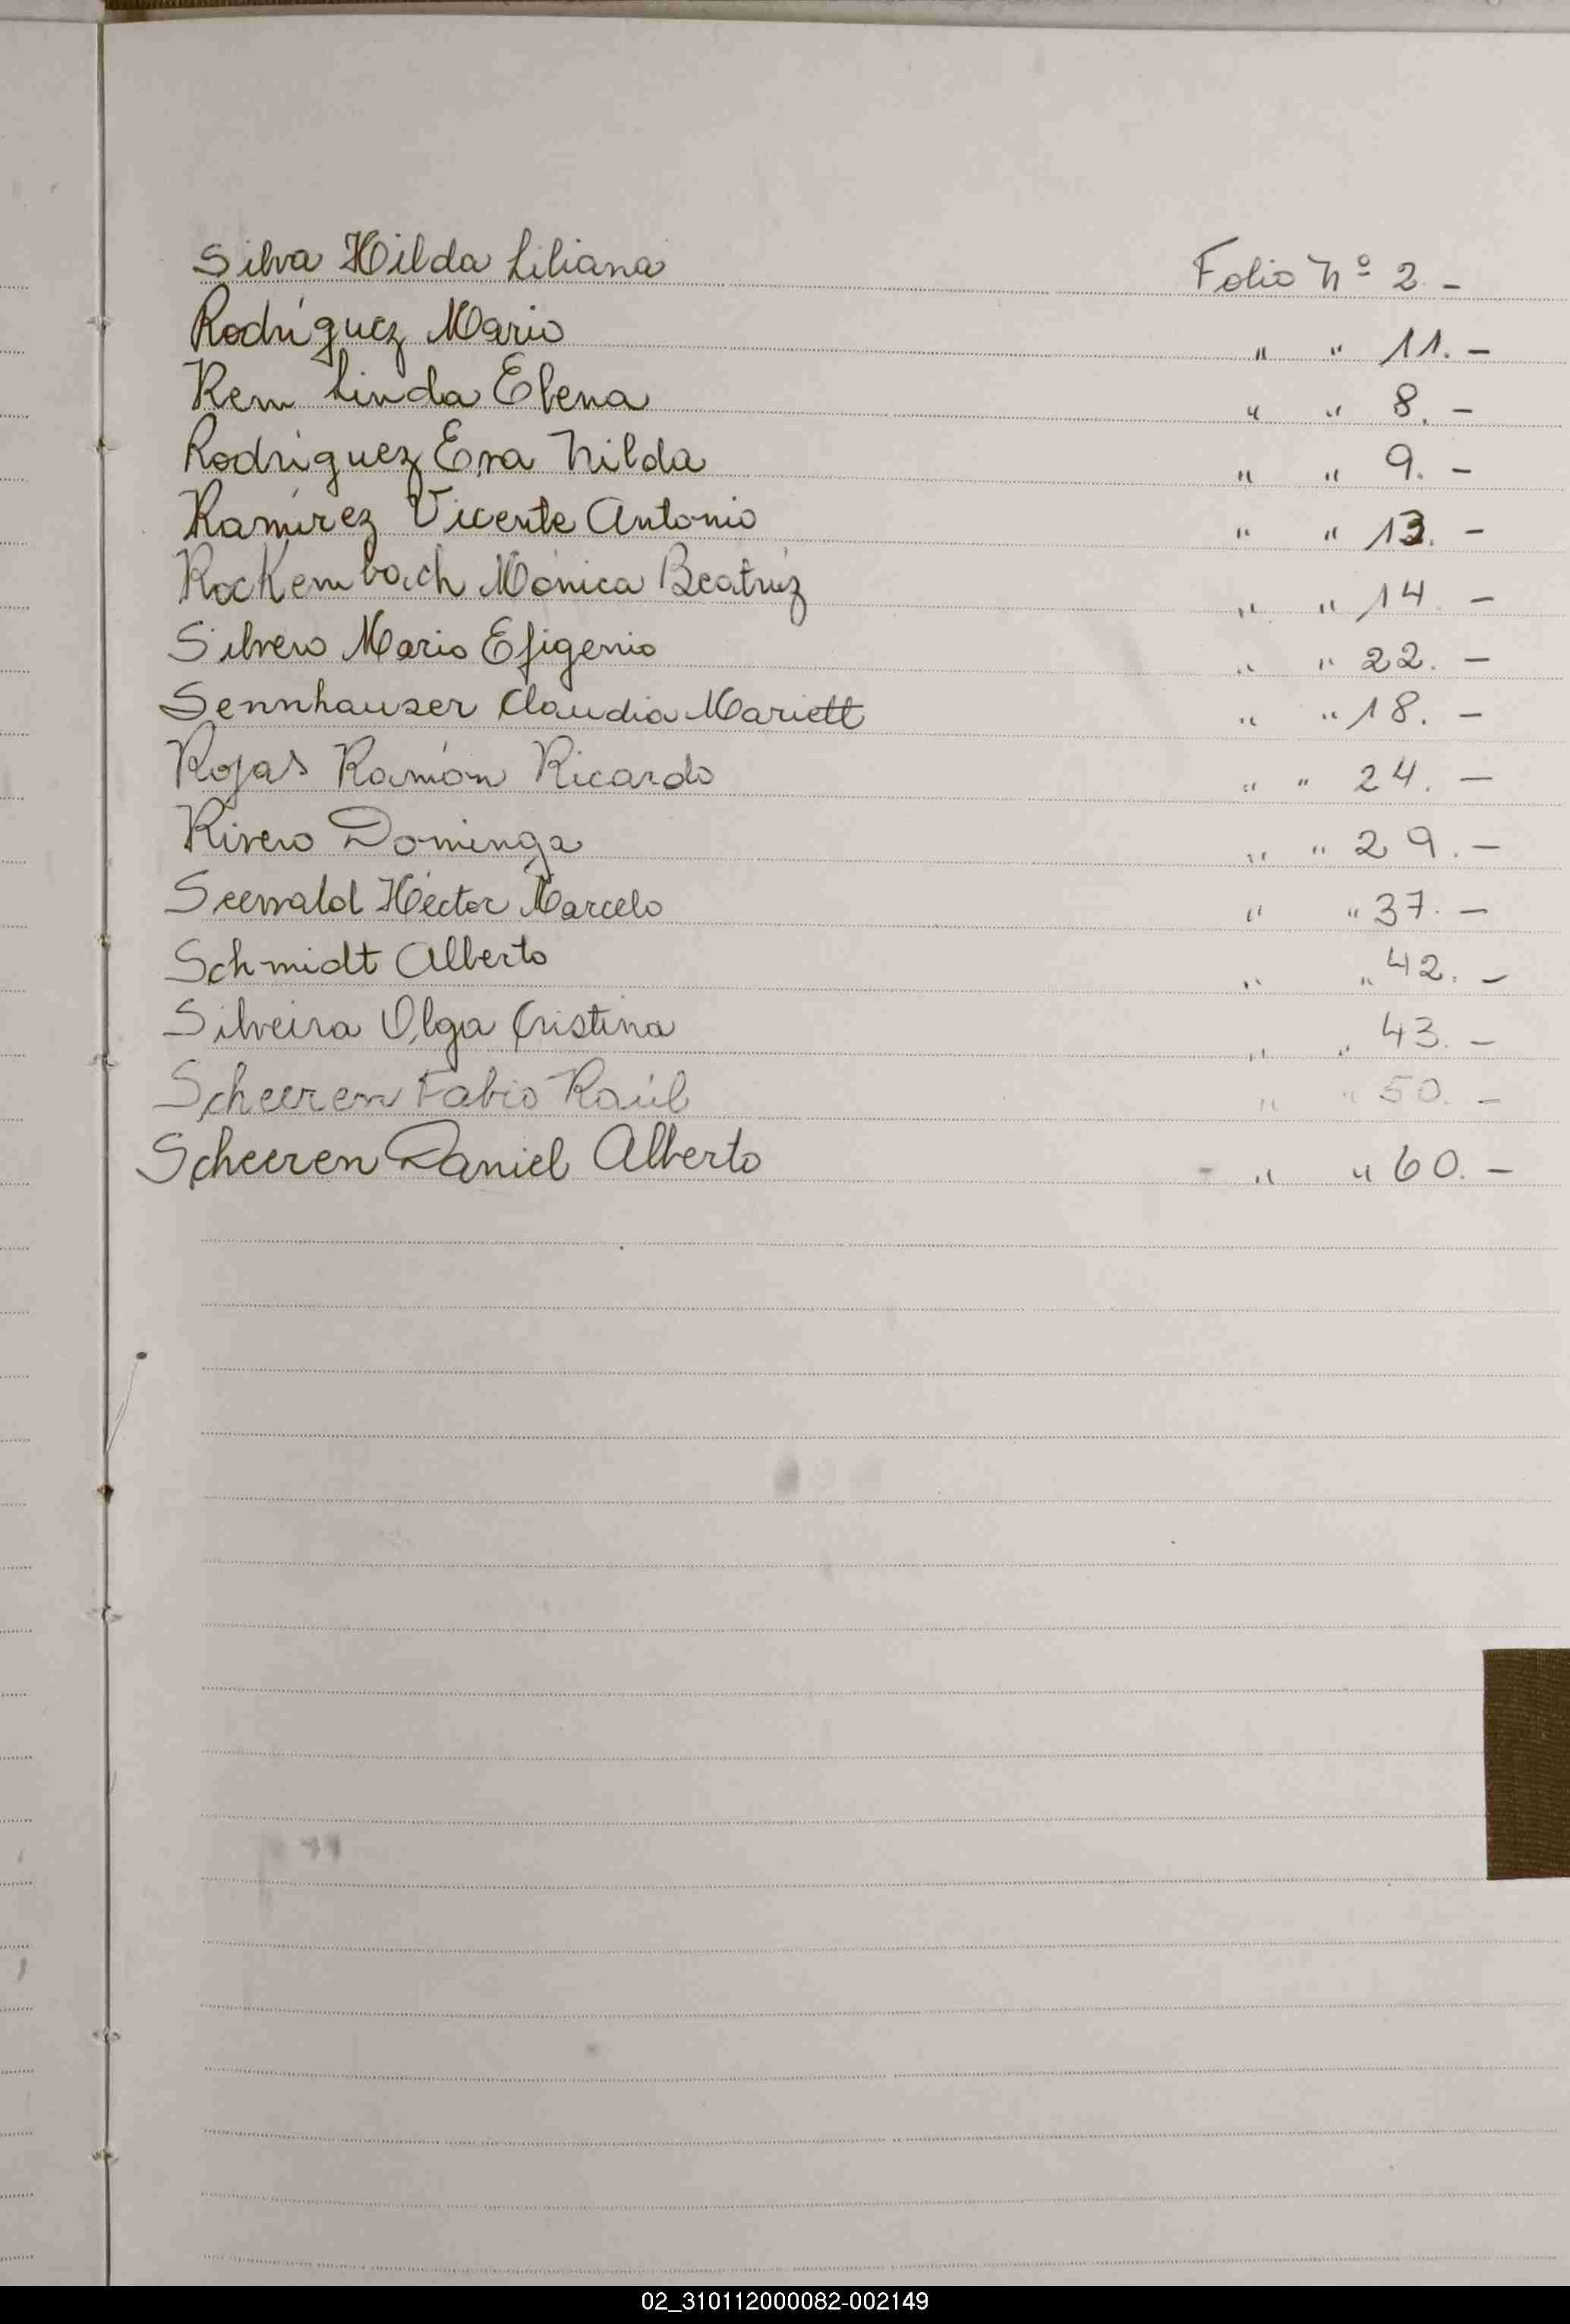 Silva Hilda Liliana Folio Nº 2.-
Rodríguez Mario " " 11.-
Rem Linda Elena " " 8.-
Rodríguez Eva Nilda " " 9.-
Ramírez Vicente Antonio " " 13.-
Rockembach Mónica Beatríz " " 14.-
Silvero Mario Efigenio " " 22.-
Sennhauser Claudia Mariett " " 18.-
Rojas Ramón Ricardo " " 24.-
Rivero Dominga " " 29.-
Seewald Héctor Marcelo " " 37.-
Schmidt Alberto " " 42.-
Silveira Olga Cristina " " 43.-
Scheeren Fabio Raúl " " 50.-
Scheeren Daniel Alberto " " 60.-
02_310112000082-002149